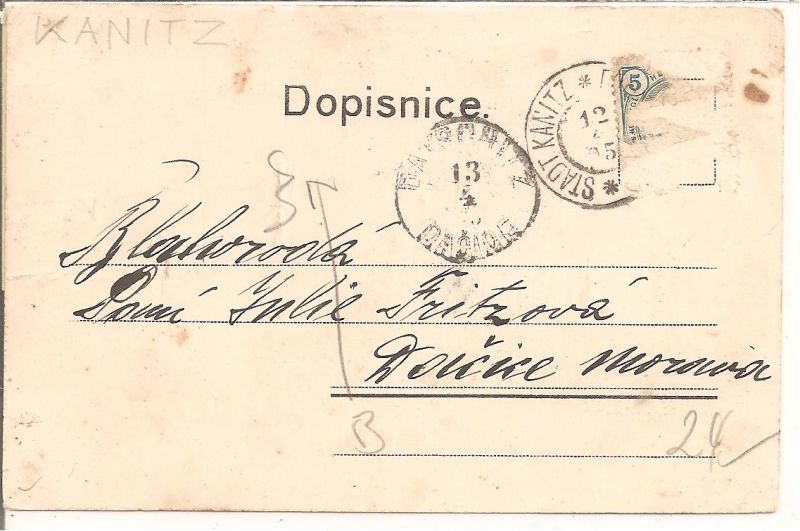 KANITZ
Dopisnice.
5
STADT KANITZ
12
13
4
DAČICE
3
Blahorodá
Paní Julie Fritzová
Dačice Morava
B
24